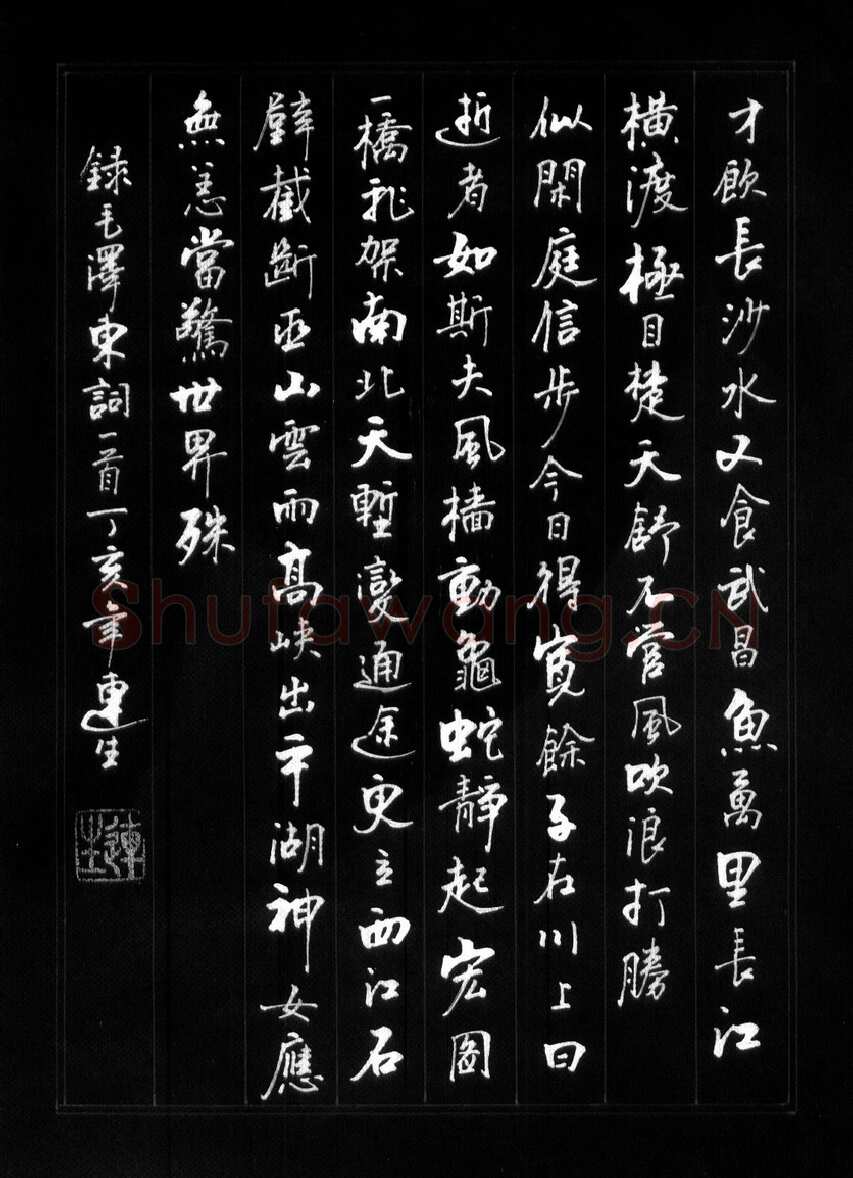 才飲長沙水又食武昌魚萬里長江
横渡極目楚天舒不管風吹浪打勝
似閑庭信步今日得寬餘子在川上曰
逝者如斯夫風檣動龜蛇靜起宏圖
一橋飛架南北天塹變通途更立西江石
壁截斷巫山雲雨高峽出平湖神女應
無恙當驚世界殊
録毛澤東詞一首丁亥年連生
連生
Shufawang.CN